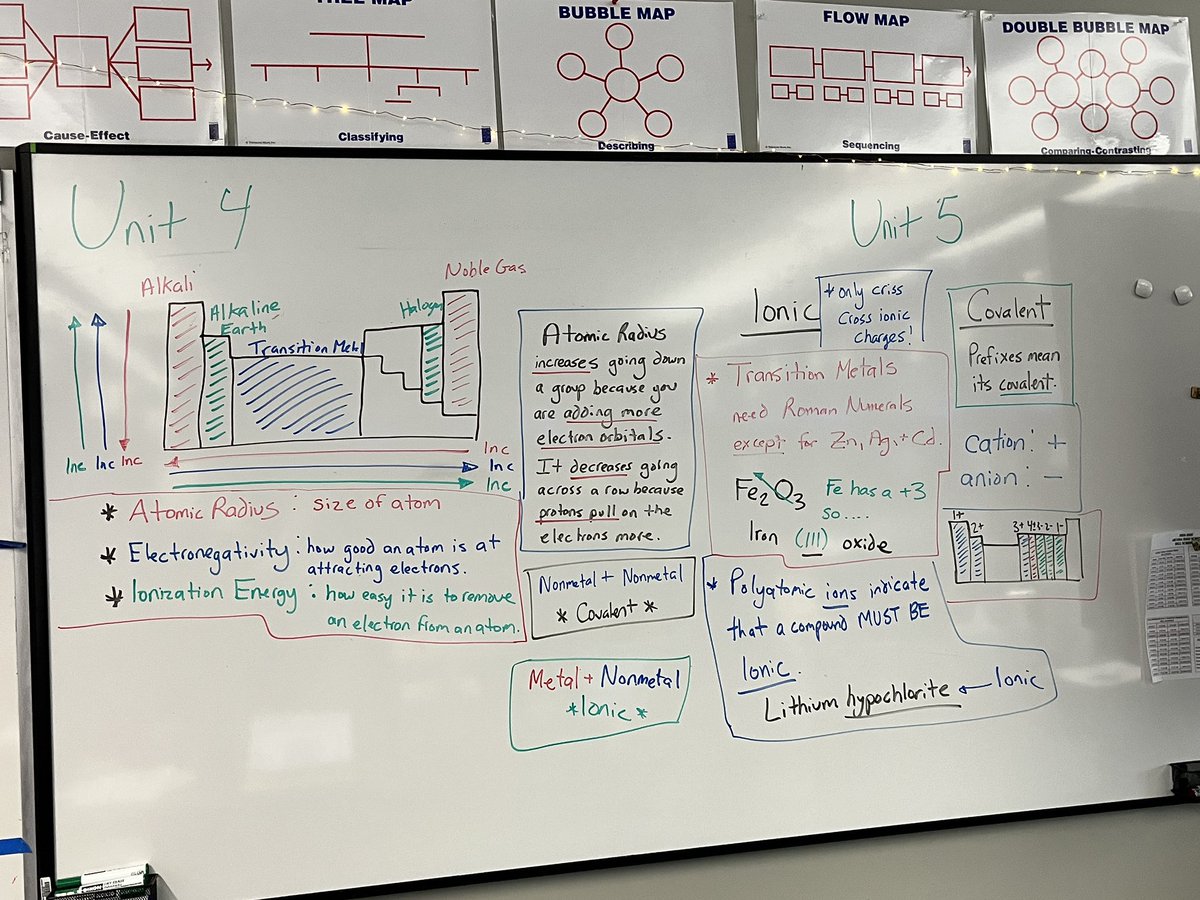 TREE MAP
BUBBLE MAP
FLOW MAP
DOUBLE BUBBLE MAP
Cause-Effect
Classifying
Describing
Sequencing
Comparing-Contrasting
Unit 4
Alkali
Alkaline
Earth
Transition Metal
Halogen
Noble Gas
Inc Inc Inc
Inc
Inc
Inc
* Atomic Radius : size of atom
* Electronegativity : how good an atom is at
attracting electrons.
* Ionization Energy : how easy it is to remove
an electron from an atom.
Atomic Radius
increases going down
a group because you
are adding more
electron orbitals.
It decreases going
across a row because
protons pull on the
electrons more.
Nonmetal + Nonmetal
* Covalent *
Metal + Nonmetal
* Ionic *
Unit 5
Ionic
* only criss
cross ionic
charges!
* Transition Metals
need Roman Numerals
except for Zn, Ag, + Cd.
Fe2O3
Fe has a +3
so....
Iron (III) oxide
* Polyatomic ions indicate
that a compound MUST BE
Ionic.
Lithium hypochlorite ← Ionic
Covalent
Prefixes mean
its covalent.
cation: +
anion: -
1+
2+
3+ 4± 3- 2- 1-